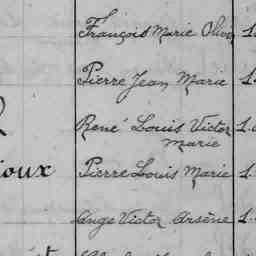 François Marie Olivier
Pierre Jean Marie
René Louis Victor
Marie
ioux Pierre Louis Marie
Ange Victor Arsène